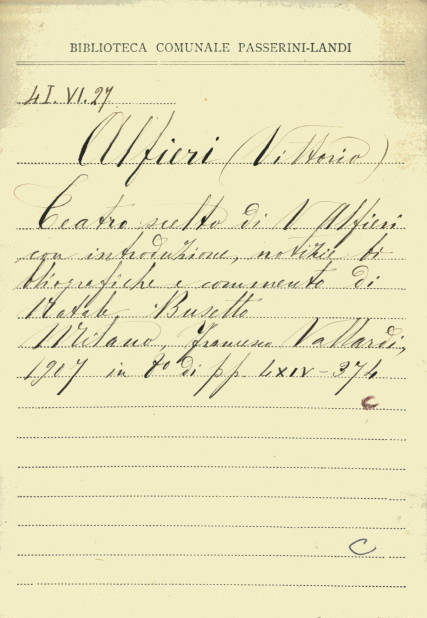 BIBLIOTECA COMUNALE PASSERINI-LANDI
4I.VI.27
Alfieri (Vittorio)
Teatro scelto di V. Alfieri
con introduzione, notizie bi
bliografiche e commento di
Natale Busetto
Milano, Francesco Vallardi,
1907 in 8º di pp. LXIV-374
C
C